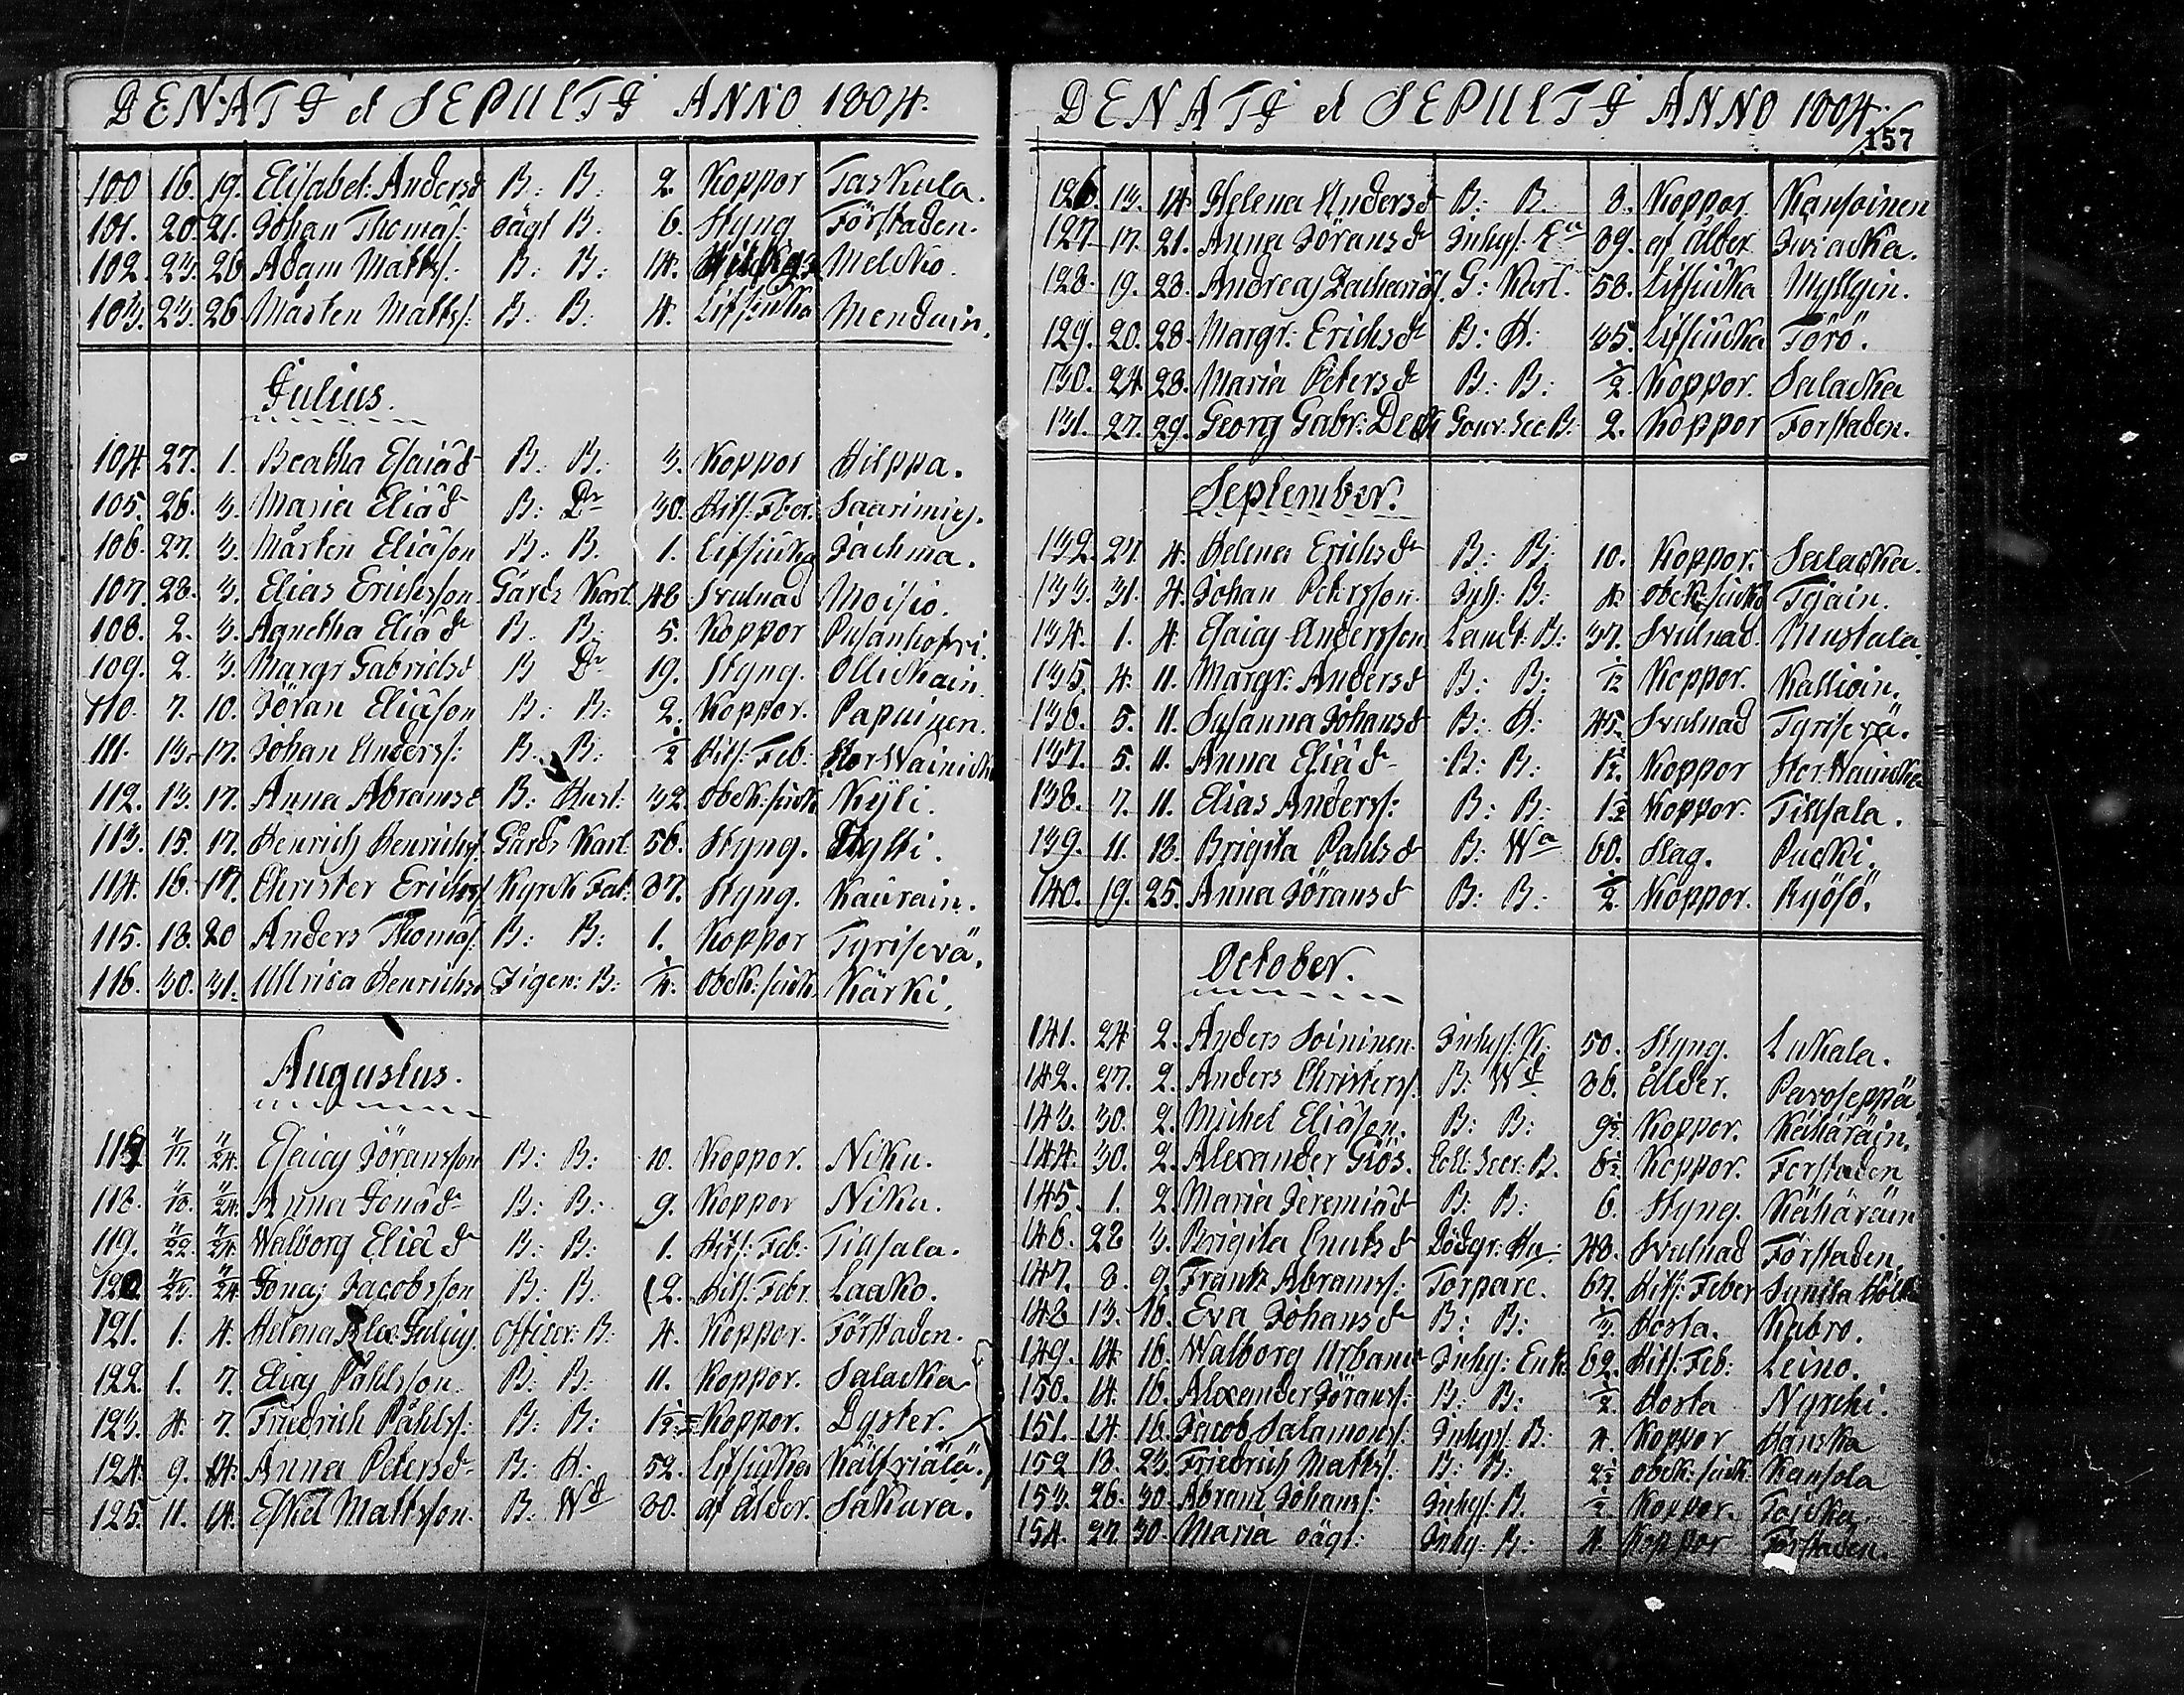 DENATI et SEPULTI ANNO 1804.
100 16. 19. Elisabet: Andersd B: B: 2. Koppor Taskula.
101. 20. 21. Johan Thomas: oägt B. 6. Styng Förstaden.
102. 23. 26 Adam Matts: B: B: 14. Melcko.
103. 23. 26 Mårten Matts: B: B: 4. Lifsiucka Mendain.
Julius.
104 27. 1. Beatha Esaiæd B: B: 3. Koppor Hilppa.
105. 26. 3. Maria Eliæd B: Dr 30. Hits: Feber: Saarimies.
106. 27. 3. Mårten Eliæson B: B. 1. Lifsiucka Jachma.
107. 28. 3. Elias Erichsson Gårds Karl. 48 Svulnad Moisio.
108. 2. 3. Agnetha Eliæd B. B: 5. Koppor Pusanhofvi.
109. 2. 3. Margr Gabrielsd B Dr 19. Styng. Ollickain.
110. 7. 10. Jöran Eliæson B: B: 2. Koppor. Papuinen.
111. 13. 17. Johan Anderss: B. B: 1/2 Hits: Feb: Stor Wainicka
112. 13. 17. Anna Abramsd B: Hust: 32. obek: siuck. Kyli.
113. 15. 17. Henrich Henrichs: Gårds Karl. 56. Styng. Hytti.
114. 16. 17. Christer Erichss Kyrck Fat: 87. Styng. Kaurain.
115. 18. 20 Anders Thomas: B: B: 1. Koppor Tyrisevä.
116. 30. 31. Ullrica Henrichsd Zigen: B: 1/4. obek: siuck. Kärki.
Augustus.
117 11/17. 11/24. Esaias Jöransson B: B: 10. Koppor. Niku.
118. 11/18. 11/24. Anna Jonæd B: B: 9. Koppor Niku.
119. 11/22. 11/24. Walborg Eliæd B: B: 1. Hits: Feb: Tillsala.
120 11/23. 11/24 Jonas Jacobsson B: B. 2. Hits: Febr. Laako.
121. 1. 4. Helena Julius. Officer: B: 4. Koppor. Förstaden.
122. 1. 7. Elias Påhlsson. B: B: 11. Koppor. Salacka
123. 4. 7. Friedrich Påhlss: B: B: 1 1/2 Koppor. Dyster.
124. 9. 14. Anna Petersd B: H: 52. Lifsiucka Kälfviälä.
125. 11. 14. Eskel Mattsson. B: Wd 80. af ålder. Sakura.
DENATI et SEPULTI ANNO 1804.
157
126. 13. 14. Helena Andersd B: B. 8. Koppor. Kansoinen
127. 17. 21. Anna Jöransd Inhys: Ea 89. af ålder Zwiacka.
128. 19. 28. Andreas Zacharias: G: Karl. 58. Lifsiucka Myllyin.
129. 20. 28. Margr: Erichsdr B: H: 35. Lifsiucka Törö.
130. 24. 28. Maria Petersdr B: B: 1/2 Koppor. Salacka
131. 27. 29. Georg Gabr: Gour: Sec B: 2. Koppor Forstaden.
September.
132. 27. 4. Helena Erichsdr B: B: 10. Koppor. Salacka.
133. 31. 4. Johan Petersson. Inh: B: 4. obek: siuck Tjäin.
134. 1. 4. Esaias Andersson Landt: B: 37. Svulnad. Mustala.
135. 4. 11. Margr: Andersd B: B: 1/12 Koppor. Kallioin.
136. 5. 11. Susanna Johansd B: H: 45. Svulnad Tyrisevä.
137. 5. 11. Anna Eliæd B: B: 1 1/2. Koppor Stor Wainicka.
138. 7. 11. Elias Anderss: B: B: 1 1/2 Koppor. Tillsala.
139. 11. 18. Brigita Pahlsd B: Wa 60. Slag. Pucki.
140. 19. 25. Anna Jöransd B: B: 1/2. Koppor. Ryösö.
October.
141. 24 2. Anders Soininen. Inhys: K: 50. Styng. Lukala.
142. 27. 2. Anders Christerss. B: Wd 86. ålder. Pavoseppä
143. 30. 2. Michel Eliæson. B: B: 9 1/2. Koppor. Kähäräin.
144. 30. 2. Alexander Giös. Coll: Secr: B. 6 1/2 Koppor. Forstaden
145. 1. 2. Maria Jeremiæd B: B: 6. Styng. Kähäräin
146. 28 3. Brigita Cnutsd Dödgr: Hu: 48. Svulnad Förstaden.
147. 8. 9. Frantz Abramss: Torpare. 67. Hits: Feber
148 13. 16. Eva Johansd B: B: 1/3. Hosta. Kabro.
149. 14 16. Walborg Urbansd Inhy: Enk. 62. Hits: Feb: Leino.
150. 14. 16. Alexander Jöranss: B: B: 1/2. Hosta Nyrchi.
151. 14 16. Jacob Salamonss: Inhys: B: 4. Koppor Hanska
152 18. 23. Friedrich Mattss: B: B: 2 1/2 obek: siuck Kansola
153. 26. 30. Abram Johanss: Inhys: B. 1/2. Koppor.
154. 27. 30. Maria oägt: Inhy: B: 4. Koppor Förstaden.